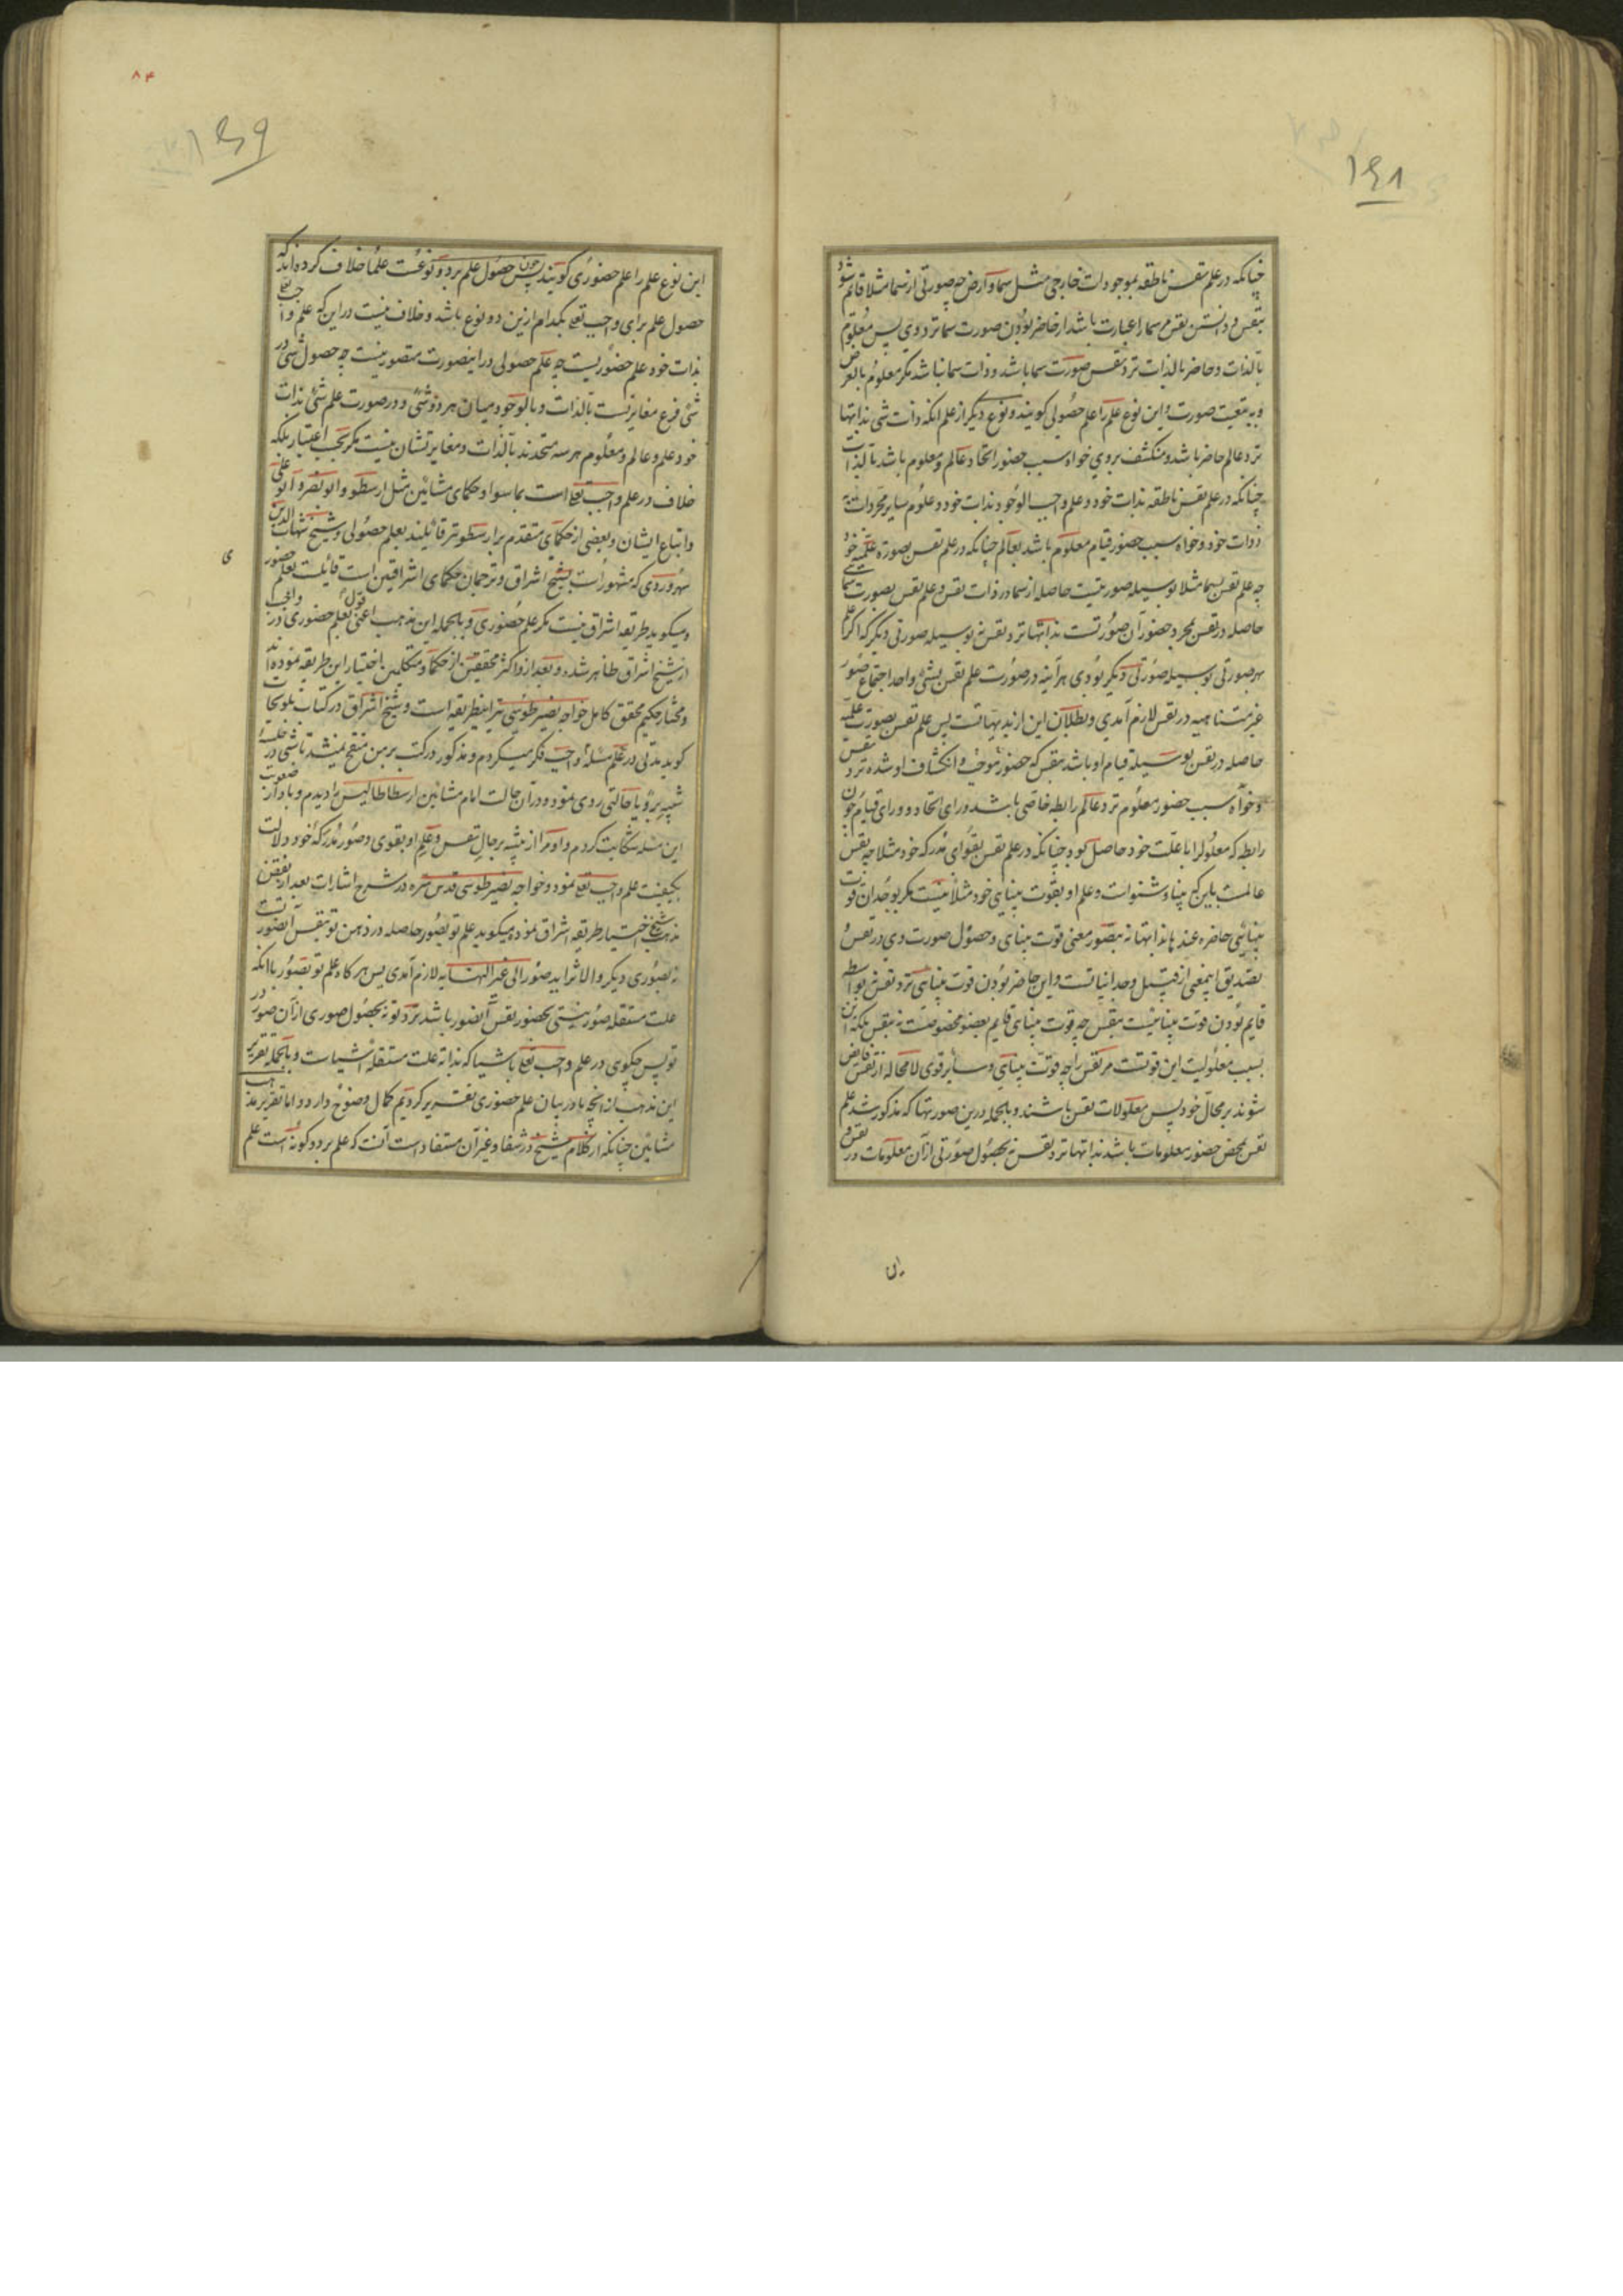 ۱۶۸
چنانکه در علم نفس ناطقه بموجودات خارجی مثل سما و ارض چه صورتی از سما مثلا قائم شود
بنفس و دانستن نفس مر سما را عبارت باشد از حاضر بودن صورت سما نزد وی پس معلوم
بالذات و حاضر بالذات نزد نفس صورت سما باشد و ذات سما نباشد مکر معلوم بالعرض
و به تبعیت صورت و این نوع علم را علم حصولی کویند و نوعی دیکر از علم آنکه ذات شی بذاتها
نزد عالم حاضر باشد و منکشف بر وی خواه سبب حضور اتحاد عالم و معلوم باشد بالذات
چنانکه در علم نفس ناطقه بذات خود و علم واجب الوجود بذات خود و علوم سایر مجردات به
ذوات خود و خواه سبب حضور قیام معلوم باشد بعالم چنانکه در علم نفس بصورة علمیه خود
چه علم نفس بسما مثلا بوسیله صورتیست حاصله از سما در ذات نفس و علم نفس بصورت سما
حاصله در نفس بمجرد حضور آن صورتست بذاتها نزد نفس نه بوسیله صورتی دیکر که اکر علم
بهر صورتی بوسیله صورتی دیکر بودی هرآینه در صورت علم نفس بشیٔ واحد اجتماع صور
غیر متناهیه در نفس لازم آمدی و بطلان این از بدیهیاتست پس علم نفس بصورت علمیه
حاصله در نفس بوسیله قیام او باشد بنفس که حضور موجب انکشاف او شده نزد نفس
و خواه سبب حضور معلوم نزد عالم رابطه خاصی باشد ورای اتحاد و ورای قیام چون
رابطه که معلول را با علت خود حاصل بود چنانکه در علم نفس بقوای مدرکه خود مثلا چه نفس
عالمست باین که بینا و شنواست و علم او بقوت بینایی خود مثلا نیست مکر بوجدان قوت
بینائی حاضره عندها بذاتها نه بتصور معنی قوت بینای و حصول صورت وی در نفس
تصدیق اینمعنی از قبیل وجدانیاتست و این حاضر بودن قوت بینایی نزد نفس نه بواسطه
قایم بودن قوت بینائیست بنفس چه قوت بینای قایم بعضو مخصوصست نه بنفس بلکه این
بسبب معلولیت این قوتست مر نفس را چه قوتت بینایی و سایر قوی لامحاله از نفس فایض
شوند بر محال خود پس معلولات نفس باشند و بالجمله درین صورتها که مذکور شد علم
نفس بمحض حضور معلومات باشد بذاتها نزد نفس نه بحصول صورتی از آن معلومات در نفس و
۸۴
۱۶۹
این نوع علم را علم حضوری کویند پس چون حصول علم بر دو نوعست علما خلاف کرده‌اند که
حصول علم برای واجب تعالی بکدام ازین دو نوع باشد و خلاف نیست در این که علم واجب تعا
بذات خود علم حضوریست چه علم حصولی در اینصورت متصور نیست چه حصول شی در
شی فرع مغایرتست بالذات و بالوجود میان هر دو شئ و در صورت علم شئ بذات
خود علم و عالم و معلوم هر سه متحدند بالذات و مغایرتشان نیست مکر بحسب اعتبار بلکه
خلاف در علم واجب تعا است بماسوا و حکمای مشائین مثل ارسطو و ابو نصر و ابو علی
و اتباع ایشان و بعضی از حکمای متقدم بر ارسطو نیز قائلند بعلم حصولی و شیخ شهاب الدین
سهروردی که مشهور است بشیخ اشراق و ترجمان حکمای اشراقین است قائلست بعلم حضوری
و میکوید طریقه اشراق نیست مکر علم حضوری و بالجمله این مذهب اعنی قول بعلم حضوری در واجب
از شیخ اشراق ظاهر شده و بعد از او اکثر محققین از حکما و متکلمین اختیار این طریقه نموده‌اند
و مختار حکیم محقق کامل خواجه نصیر طوسی نیز اینطریقه است و شیخ اشراق در کتاب تلویحات
کوید مدتی در علم مسئله واجب فکر میکردم و مذکور در کتب بر من منقح نمیشد تا شبی در خلسهٔ
شبیه برویا حالتی روی نمود و در آن حالت امام مشائین ارسطاطالیس را دیدم و باو از صعوبت
این مسئله شکایت کردم و او مرا از تنبیه بر حال نفس و علم او بقوی و صور مدرکه خود دلالت
بکیفیت علم واجب تعا نمود و خواجه نصیر طوسی قدس سره در شرح اشارات بعد از نقض
مذهب شیخ اختیار طریقه اشراق نموده میکوید علم تو بصور حاصله در ذهن تو بنفس آنصور تست
نه بصوری دیکر و الا تزاید صور الی غیر النهایه لازم آمدی پس هر کاه علم تو بصور باآنکه
علت مستقله صور نیستی بحضور نفس آنصور باشد نزد تو نه بحصول صوری از آن صور در
تو پس چکویی در علم واجب تعالی باشیا که بذاته علت مستقله اشیاست و بالجمله تقریر
این مذهب از آنچه ما در بیان علم حضوری تقریر کردیم کمال وضوح دارد و اما تقریر مذهب
مشائین چنانکه از کلام شیخ در شفا و غیر آن مستفاد است آنست که علم بر دو کونه است علم